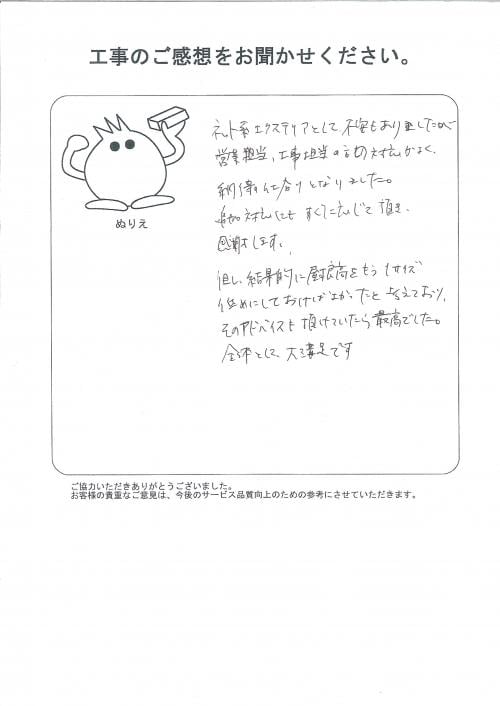 工事のご感想をお聞かせください。
ネット系エクステリアとして不安もありましたが
営業担当、工事担当の方の対応がよく、
納得仕上りとなりました。
追加対応にもすぐに応じて頂き、
感謝します。
但し、結果的に高をもう1サイズ
低めにしておけばよかったと考えており、
そのアドバイスも頂けていたら最高でした。
全体として、大満足です
ぬりえ
ご協力いただきありがとうございました。
お客様の貴重なご意見は、今後のサービス品質向上のための参考にさせていただきます。